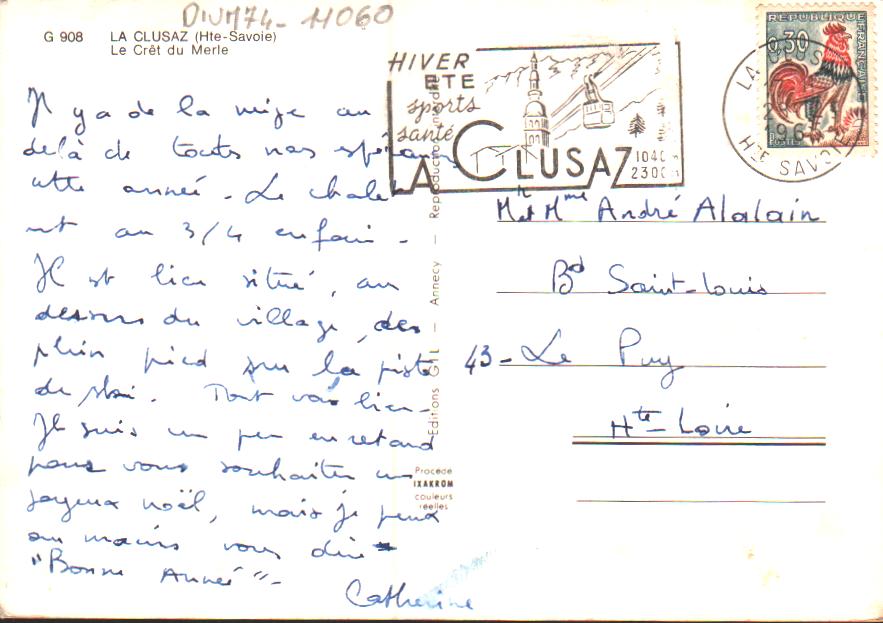 DIVM74-11060
G 908 LA CLUSAZ (Hte-Savoie)
Le Crêt du Merle
Il y a de la neige au
delà de toutes nos espérances
cette année. Le chalet
est au 3/4 enfoui.
Il est bien situé, au
dessus du village, des
plein pied sur la piste
de ski. Tout va bien.
Je suis un peu en retard
pour vous souhaiter un
joyeux noël, mais je peux
au moins vous dire
"Bonne Année".
Catherine
Editions GIL — Annecy — Reproduction interdite
Procédé
IXAKROM
couleurs
réelles
HIVER
ETE
sports
santé
LA CLUSAZ
1040 m
2300 m
REPUBLIQUE FRANÇAISE
0,30
POSTES
LA CLUSAZ
HTE SAVOIE
M et Mme André Alalain
Bd Saint-Louis
43 - Le Puy
Hte-Loire